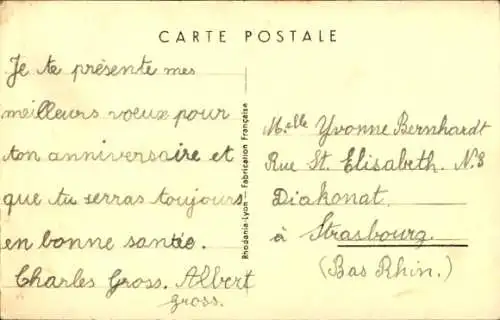 CARTE POSTALE
Je te présente mes
meilleurs voeux pour
ton anniversaire et
que tu serras toujours
en bonne santée.
Charles Gross. Albert
gross.
Rhodania-Lyon — Fabrication Française
Melle Yvonne Bernhardt
Rue St. Elisabeth. N.3
Diakonat.
à Strasbourg.
(Bas Rhin.)